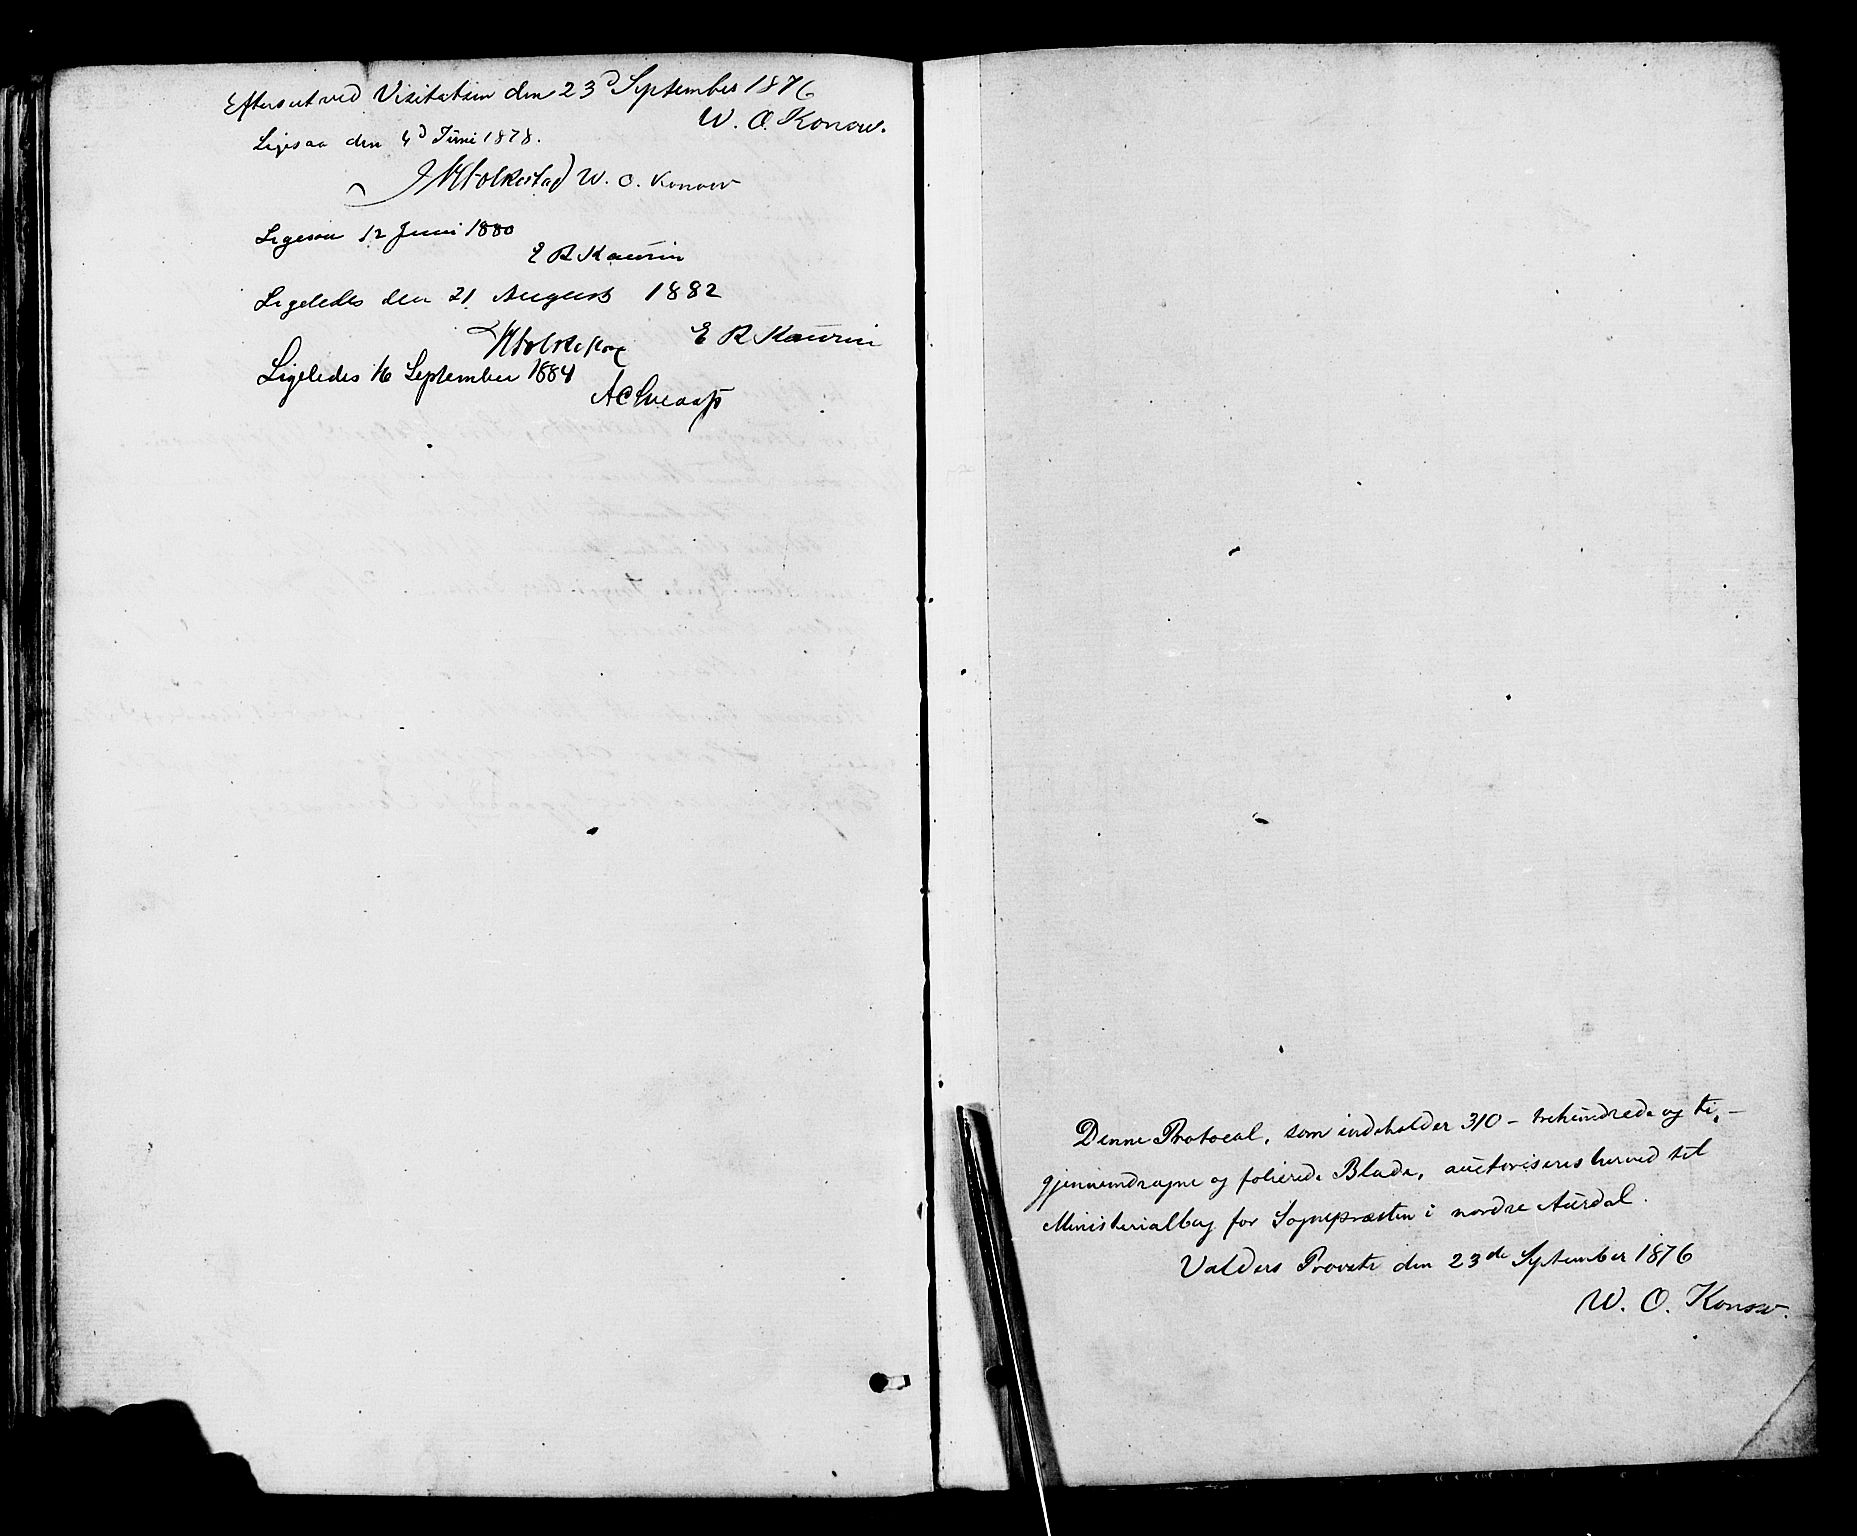 Efterseet ved Visitatsen den 23d September 1876
W. O. Konow.
Ligesaa den 4d Juni 1878.
W. O. Konow
Ligesaa 12 Juni 1880
E R Kaurin
Ligeledes den 21 August 1882
E R Kaurin
Ligeledes 16 September 1884
Denne Protocal, som indeholder 310 – trehundrede og ti, –
gjennemdragne og folierede Blade, auctoriseres herved til
Ministerialbog for Sognepræsten i nordre Aurdal.
Valders Provsti den 23de September 1876
W. O. Konow.